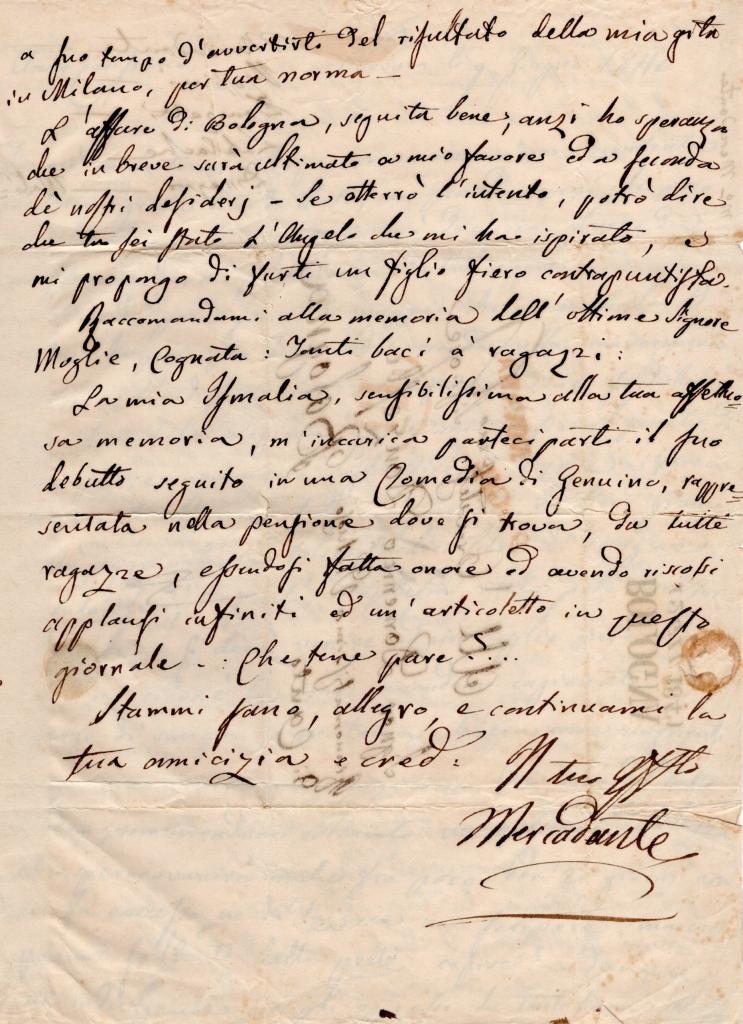 a suo tempo d'avvertirti del risultato della mia gita
in Milano, per tua norma —
L'affare di Bologna, seguita bene, anzi ho speranza
che in breve sarà ultimato a mio favore ed a seconda
de' nostri desiderj — Se otterrò l'intento, potrò dire
che tu sei stato L'Angelo che mi ha ispirato, e
mi propongo di farti un figlio fiero contrapuntista.
Raccomandami alla memoria dell'ottime Signore
Moglie, Cognata: Tanti baci a' ragazzi:
La mia Ismalia, sensibilissima alla tua affettuo=
sa memoria, m'incarica parteciparti il suo
debutto seguito in una Comedia di Genuino, rappre=
sentata nella pensione dove si trova, da tutte
ragazze, essendosi fatta onore ed avendo riscossi
applausi infiniti ed un'articoletto in questo
giornale -: Che tene pare?...
Stammi sano, allegro, e continuami la
tua amicizia e cred:
Il tuo aff.to
Mercadante
BOLOGNA